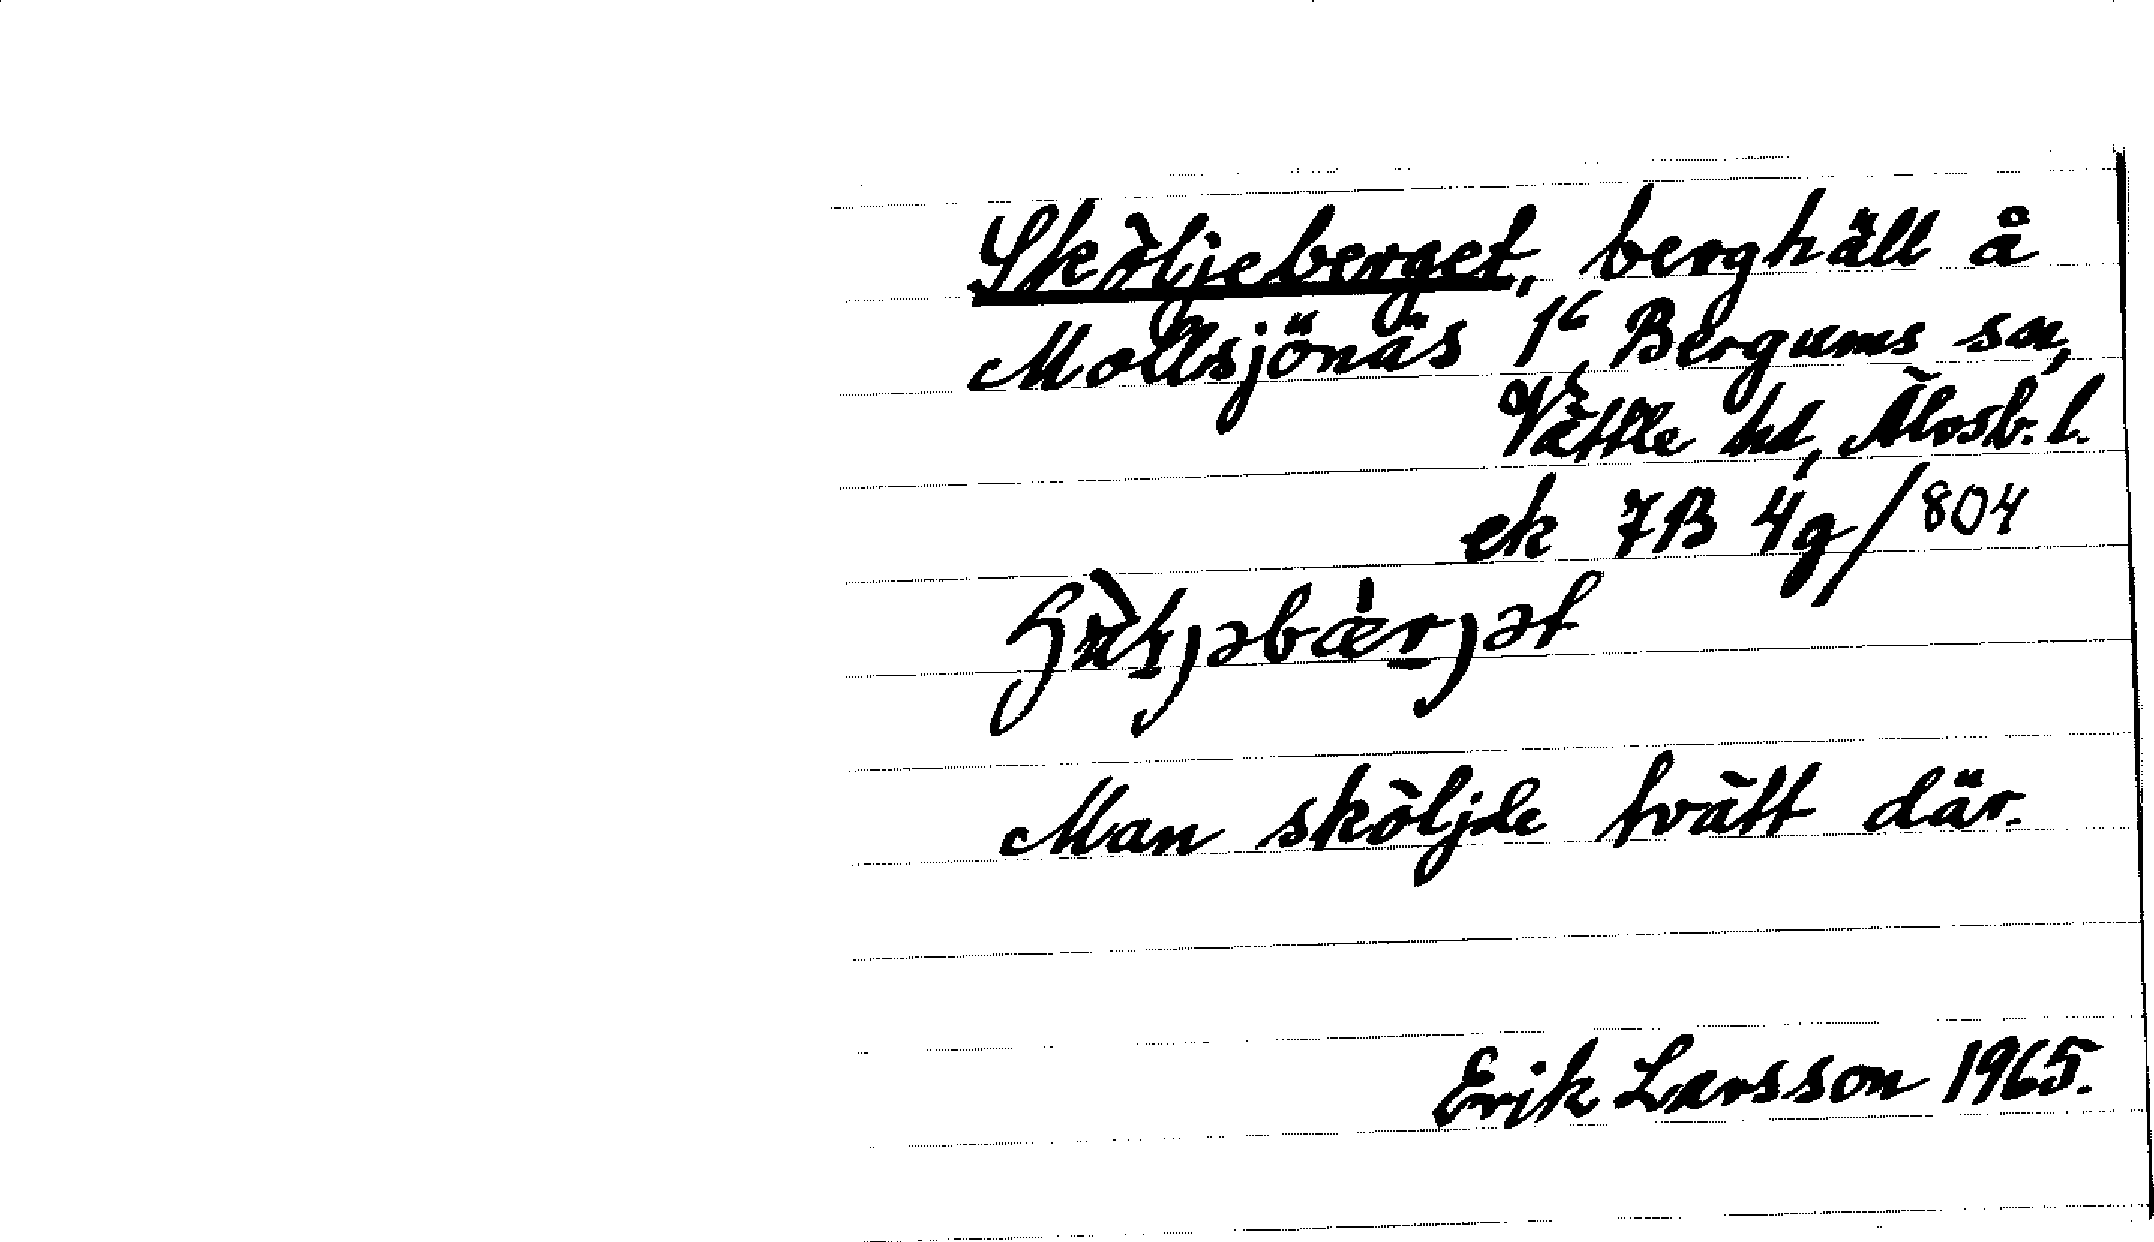 Sköljeberget, berghäll å
Mollsjönäs 1⁶ Bergums sn,
Vättle hd, Älvsb. l.
ek 7B 4g/804
Man sköljde tvätt där.
Erik Larsson 1965.